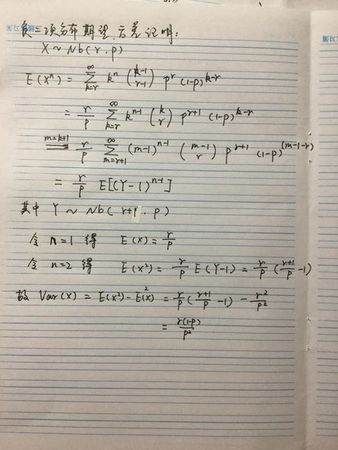 负二项分布期望、方差证明:
X ~ Nb(r, p)
E(X^n) = \sum_{k=r}^{\infty} k^n \binom{k-1}{r-1} p^r (1-p)^{k-r}
= \frac{r}{p} \sum_{k=r}^{\infty} k^{n-1} \binom{k}{r} p^{r+1} (1-p)^{k-r}
\xlongequal{m=k+1} \frac{r}{p} \sum_{m=r+1}^{\infty} (m-1)^{n-1} \binom{m-1}{r} p^{r+1} (1-p)^{(m-1-r)}
= \frac{r}{p} E[(Y-1)^{n-1}]
其中 Y ~ Nb(r+1, p)
令 n=1 得 E(X) = \frac{r}{p}
令 n=2 得 E(X^2) = \frac{r}{p} E(Y-1) = \frac{r}{p} (\frac{r+1}{p} - 1)
故 Var(X) = E(X^2) - E^2(X) = \frac{r}{p} (\frac{r+1}{p} - 1) - \frac{r^2}{p^2}
= \frac{r(1-p)}{p^2}